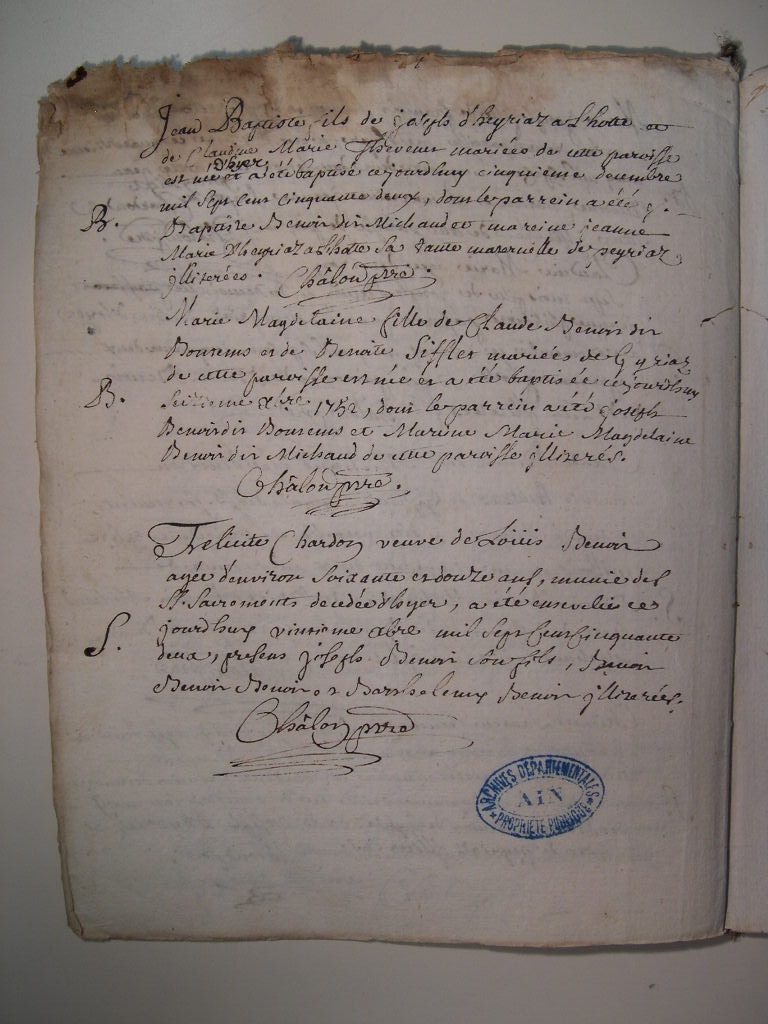 Jean Baptiste fils de joseph d'heyriaz a Lhotte et
de Claudine Marie Thevenet mariées de cette paroisse
d'hyer
est née et a été baptisé ce jourdhuy cinquieme decembre
mil sept cent cinquante deux, dont le parrein a été j.
B. Baptiste Benoit dit Michaud et mareine jeanne
Marie D'heyriaz a Lhotte sa tante maternelle de peyriaz
jllitérées. Châlon ptre.
Marie Magdelaine fille de Claude Benoit dit
Bourems et de Benoite Sifflet mariées de
de cette paroisse est née et a été baptisée ce jourdhuy
B. xbre 1752, dont le parrein a été joseph
Benoit dit Bourems et Mareine Marie Magdelaine
Benoit dit Michaud de cette paroisse jllitérés.
Châlon ptre.
Felicite Chardon veuve de Loüis Benoit
agée d'environ soixante et douze ans, munie des
Sts. Sacrements decedée d'hyer, a été ensevelie ce
S. jourdhuy vintieme xbre mil sept cent cinquante
deux, presens joseph Benoit son fils, Benoit
Benoit Benoit et Barthelemy Benoit jllitérées.
Châlon ptre
ARCHIVES DÉPARTEMENTALES
AIN
PROPRIÉTÉ PUBLIQUE